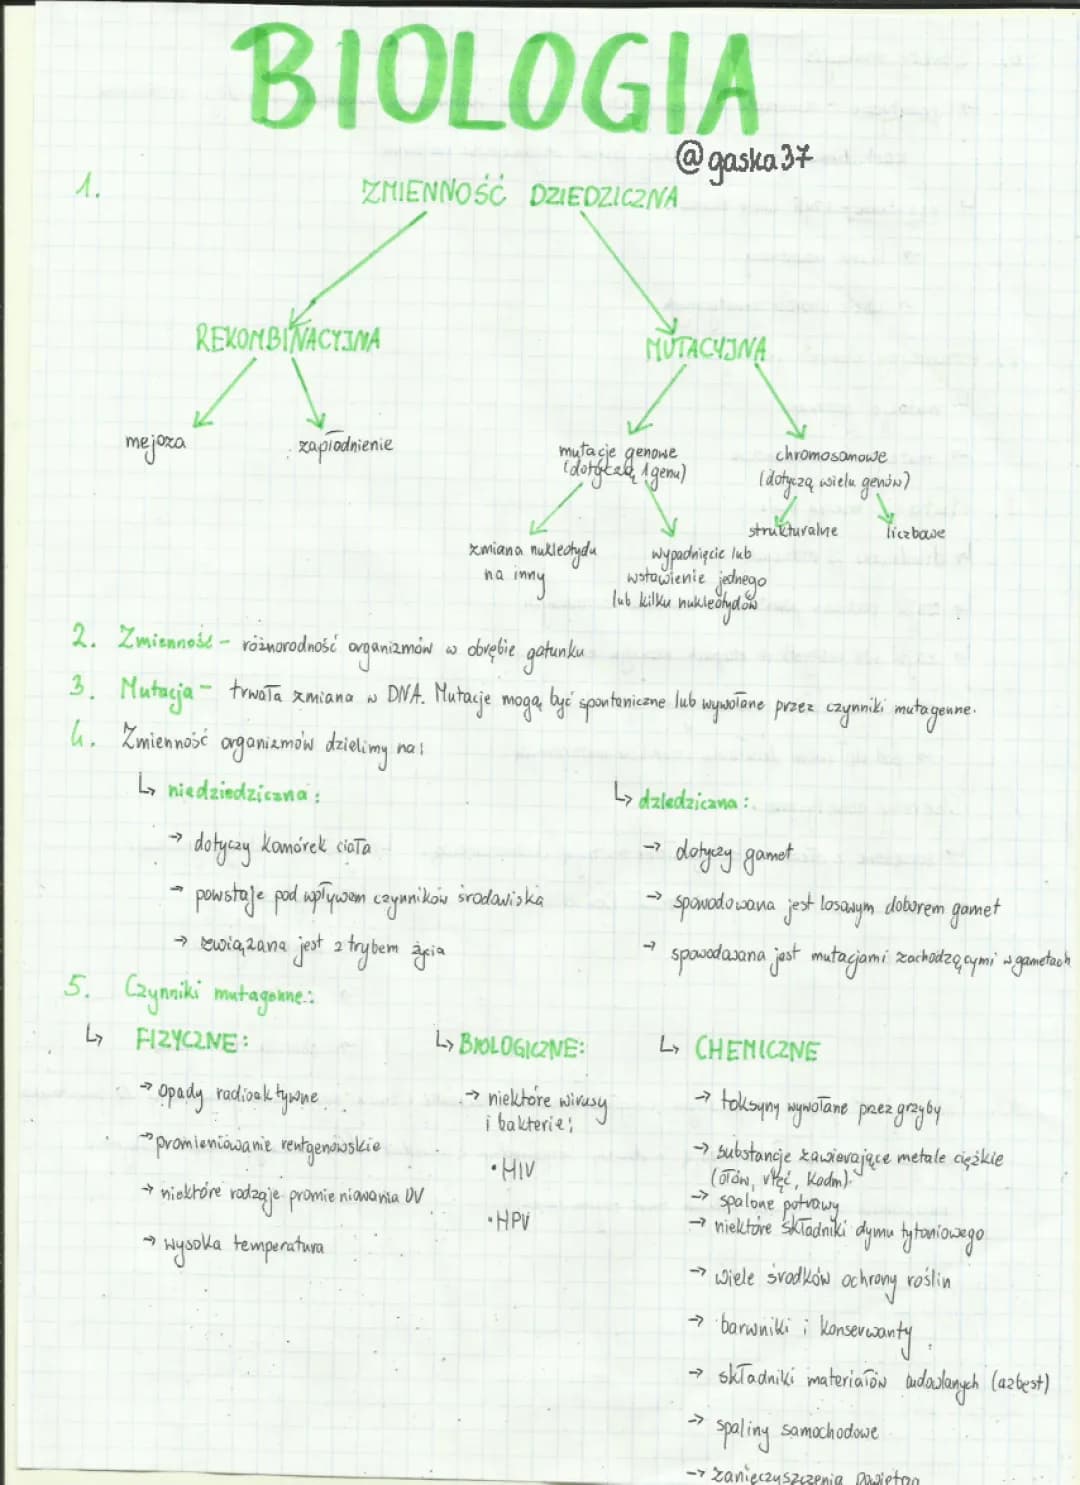 BIOLOGIA
@gaska37
1. ZMIENNOŚĆ DZIEDZICZNA
REKOMBINACYJNA
MUTACYJNA
mejoza
zapłodnienie
mutacje genowe
(dotyczą 1 genu)
chromosomowe
(dotyczą wielu genów)
zmiana nukleotydu
na inny
wypadnięcie lub
wstawienie jednego
lub kilku nukleotydów
strukturalne
liczbowe
2. Zmienność - różnorodność organizmów w obrębie gatunku
3. Mutacja - trwała zmiana w DNA. Mutacje mogą być spontaniczne lub wywołane przez czynniki mutagenne.
4. Zmienność organizmów dzielimy na:
↳ niedziedziczna:
→ dotyczy komórek ciała
→ powstaje pod wpływem czynników środowiska
→ związana jest z trybem życia
↳ dziedziczna:
→ dotyczy gamet
→ spowodowana jest losowym doborem gamet
→ spowodowana jest mutacjami zachodzącymi w gametach
5. Czynniki mutagenne:
↳ FIZYCZNE:
→ opady radioaktywne
→ promieniowanie rentgenowskie
→ niektóre rodzaje promieniowania UV
→ wysoka temperatura
↳ BIOLOGICZNE:
→ niektóre wirusy
i bakterie:
• HIV
• HPV
↳ CHEMICZNE
→ toksyny wywołane przez grzyby
→ substancje zawierające metale ciężkie
(ołów, rtęć, kadm).
→ spalone potrawy
→ niektóre składniki dymu tytoniowego
→ wiele środków ochrony roślin
→ barwniki i konserwanty
→ składniki materiałów budowlanych (azbest)
→ spaliny samochodowe
→ zanieczyszczenia powietrza